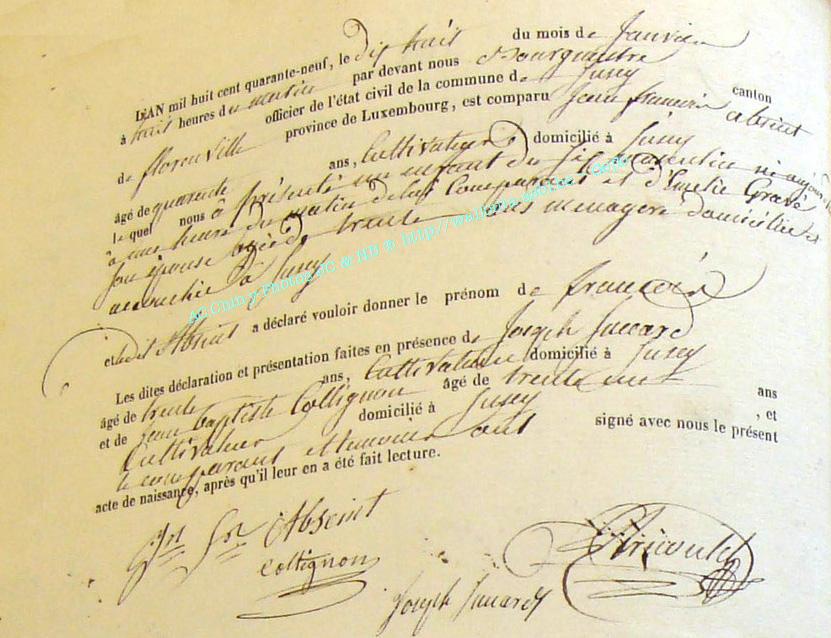 L'AN mil huit cent quarante-neuf, le dix huit du mois de Janvier
à huit heures du matin par devant nous Bourgmestre
officier de l'état civil de la commune de Jusey canton
de florenville province de Luxembourg, est comparu Jean francois absint
âgé de quarante ans, Cultivateur domicilié à Jusey
le quel nous a présenté un enfant du né aujourd'hui
à une heure du matin de lui Comparant et d'Emelie Gravé
son épouse agée de trente ans menagere domiciliée et
accouchée à Jusey
et le dit Absint a déclaré vouloir donner le prénom de francois
Les dites déclaration et présentation faites en présence de Joseph
âgé de trente ans, Cultivateur domicilié à Jusey
et de jean baptiste Collignon âgé de trente ans
Cultivateur domicilié à Jusey , et
le comparant et temoins ont signé avec nous le présent
acte de naissance, après qu'il leur en a été fait lecture.
Absint
Collignon
Joseph
AC Chiny Photos JC & ND ® http://